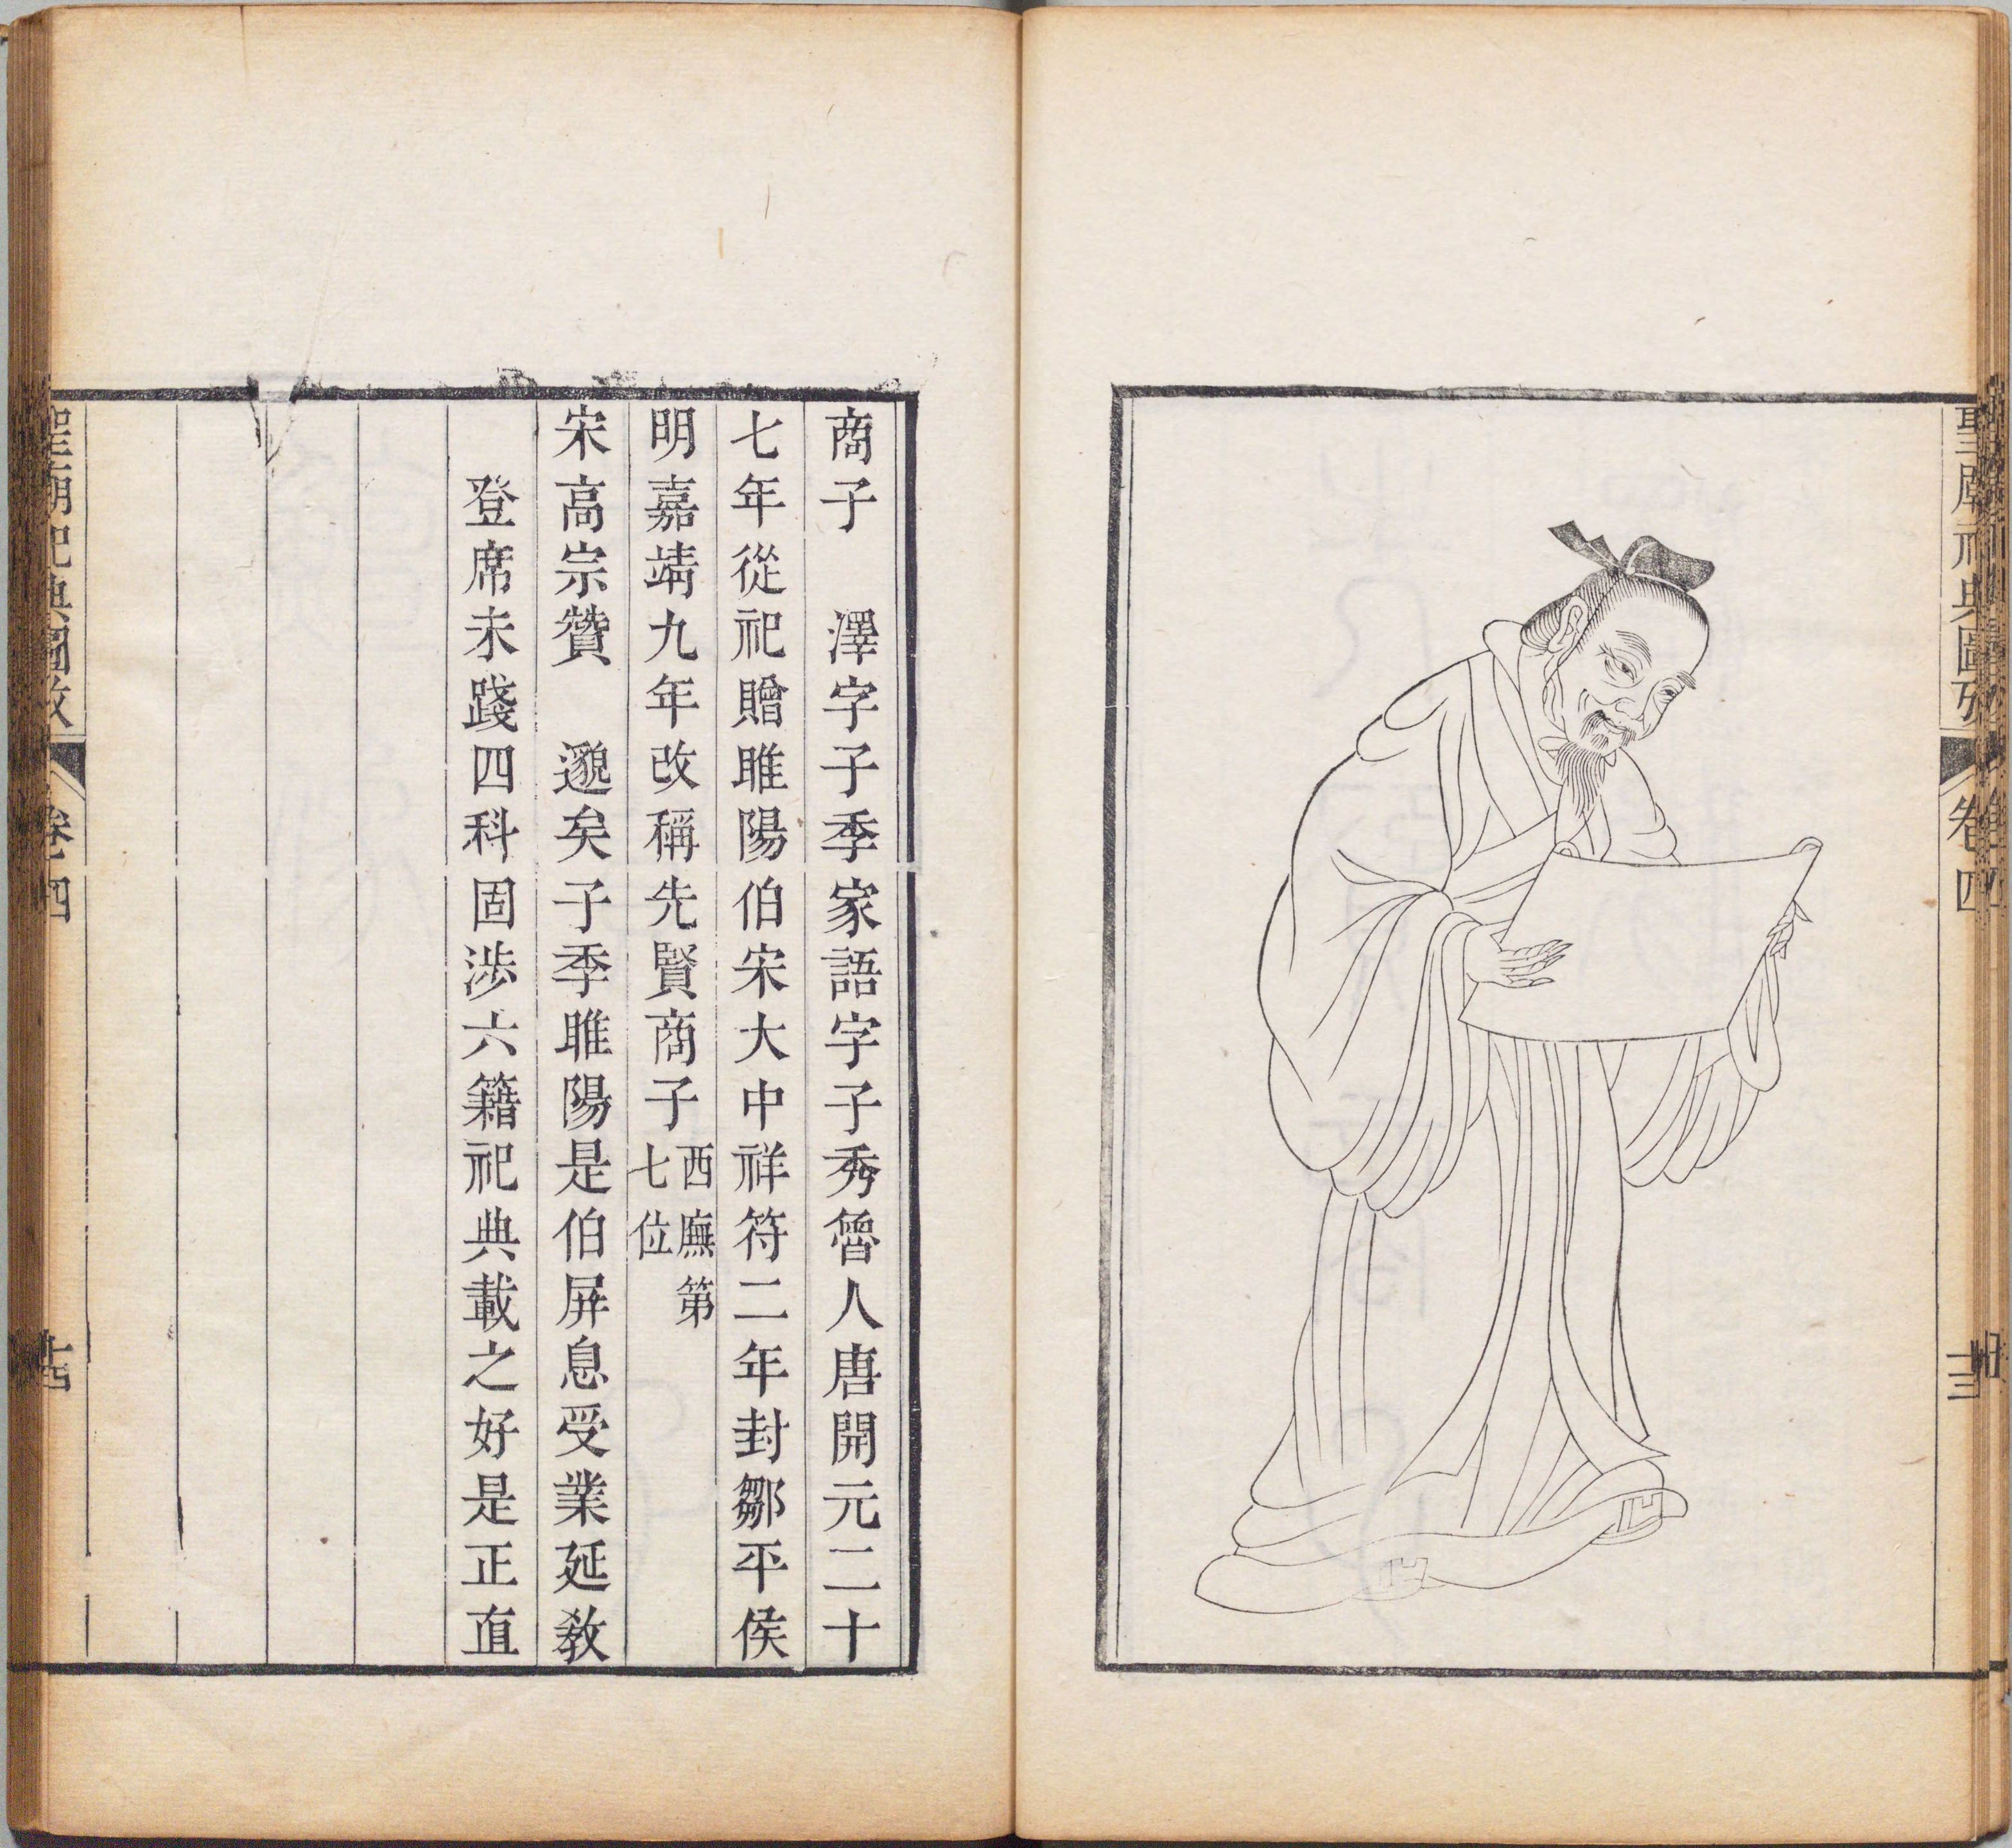 聖廟祀典圖攷
卷四
十三
商子　澤字子季家語字子秀魯人唐開元二十
七年從祀贈睢陽伯宋大中祥符二年封鄒平侯
明嘉靖九年改稱先賢商子西廡第
七位
宋高宗贊　邈矣子季睢陽是伯屏息受業延敎
登席未踐四科固涉六籍祀典載之好是正直
聖廟祀典圖攷
卷四
十四